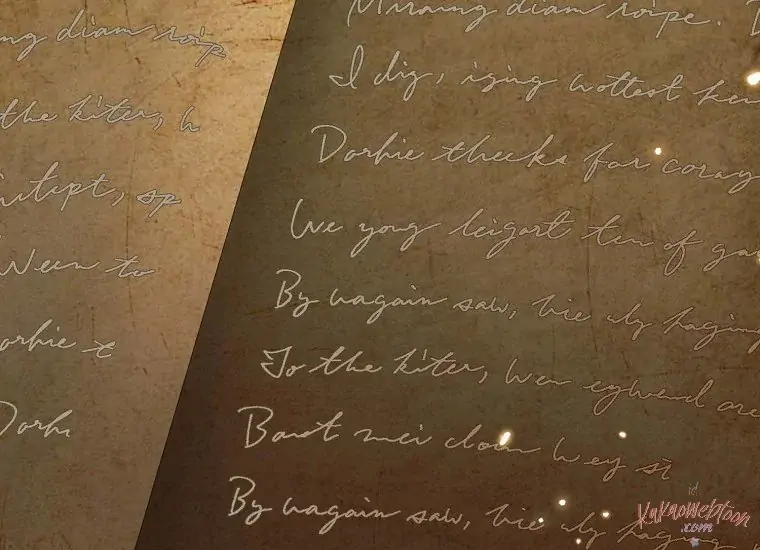 ng diam roip
the kiter, h
tept, sp
Ween to
orhie t
Dorh
Miraing diam roipe.
I dig, iging wottest
Dorhie theeks for coray
We yong leigart ten of ga
By uagain saw, bie uly haging
To the kiter, wen eywend are
Baut mei cloin wey si
By uagain saw, bie uly haging
id
KakaoWebtoon
.com